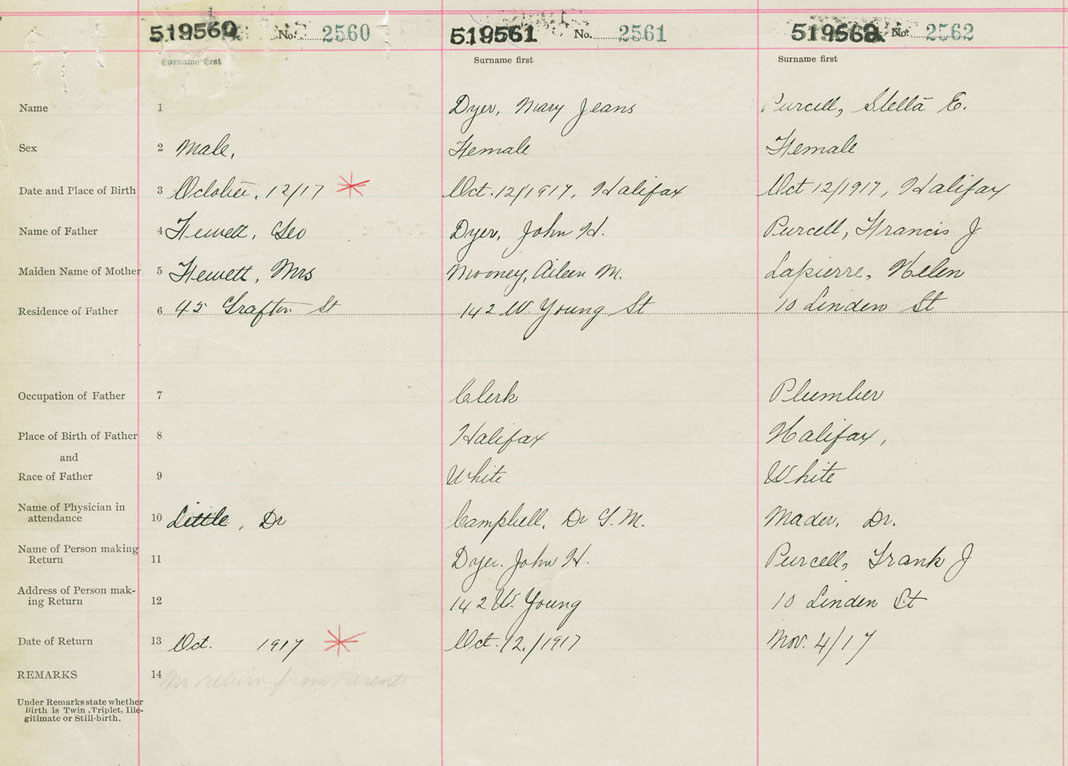 519560 No. 2560 519561 No. 2561 519562 No. 2562
Surname first Surname first Surname first
Name 1 Dyer, Mary Jeans Purcell, Stella E.
Sex 2 Male, Female Female
Date and Place of Birth 3 October, 12/17 Oct. 12/1917, Halifax Oct 12/1917, Halifax
Name of Father 4 Hewett, Geo Dyer, John H. Purcell, Francis J
Maiden Name of Mother 5 Hewett, Mrs Mooney, Aileen M. Lapierre, Helen
Residence of Father 6 45 Grafton St 142 W. Young St 10 Linden St
Occupation of Father 7 Clerk Plumber
Place of Birth of Father 8 Halifax Halifax,
and
Race of Father 9 White White
Name of Physician in
attendance 10 Little, Dr Campbell, Dr G.M. Mader, Dr.
Name of Person making
Return 11 Dyer. John H. Purcell, Frank J
Address of Person mak-
ing Return 12 142 W. Young 10 Linden St
Date of Return 13 Oct. 1917 Oct. 12./1917 Nov. 4/17
REMARKS 14 No return from Parents
Under Remarks state whether
Birth is Twin, Triplet, Ille-
gitimate or Still-birth.